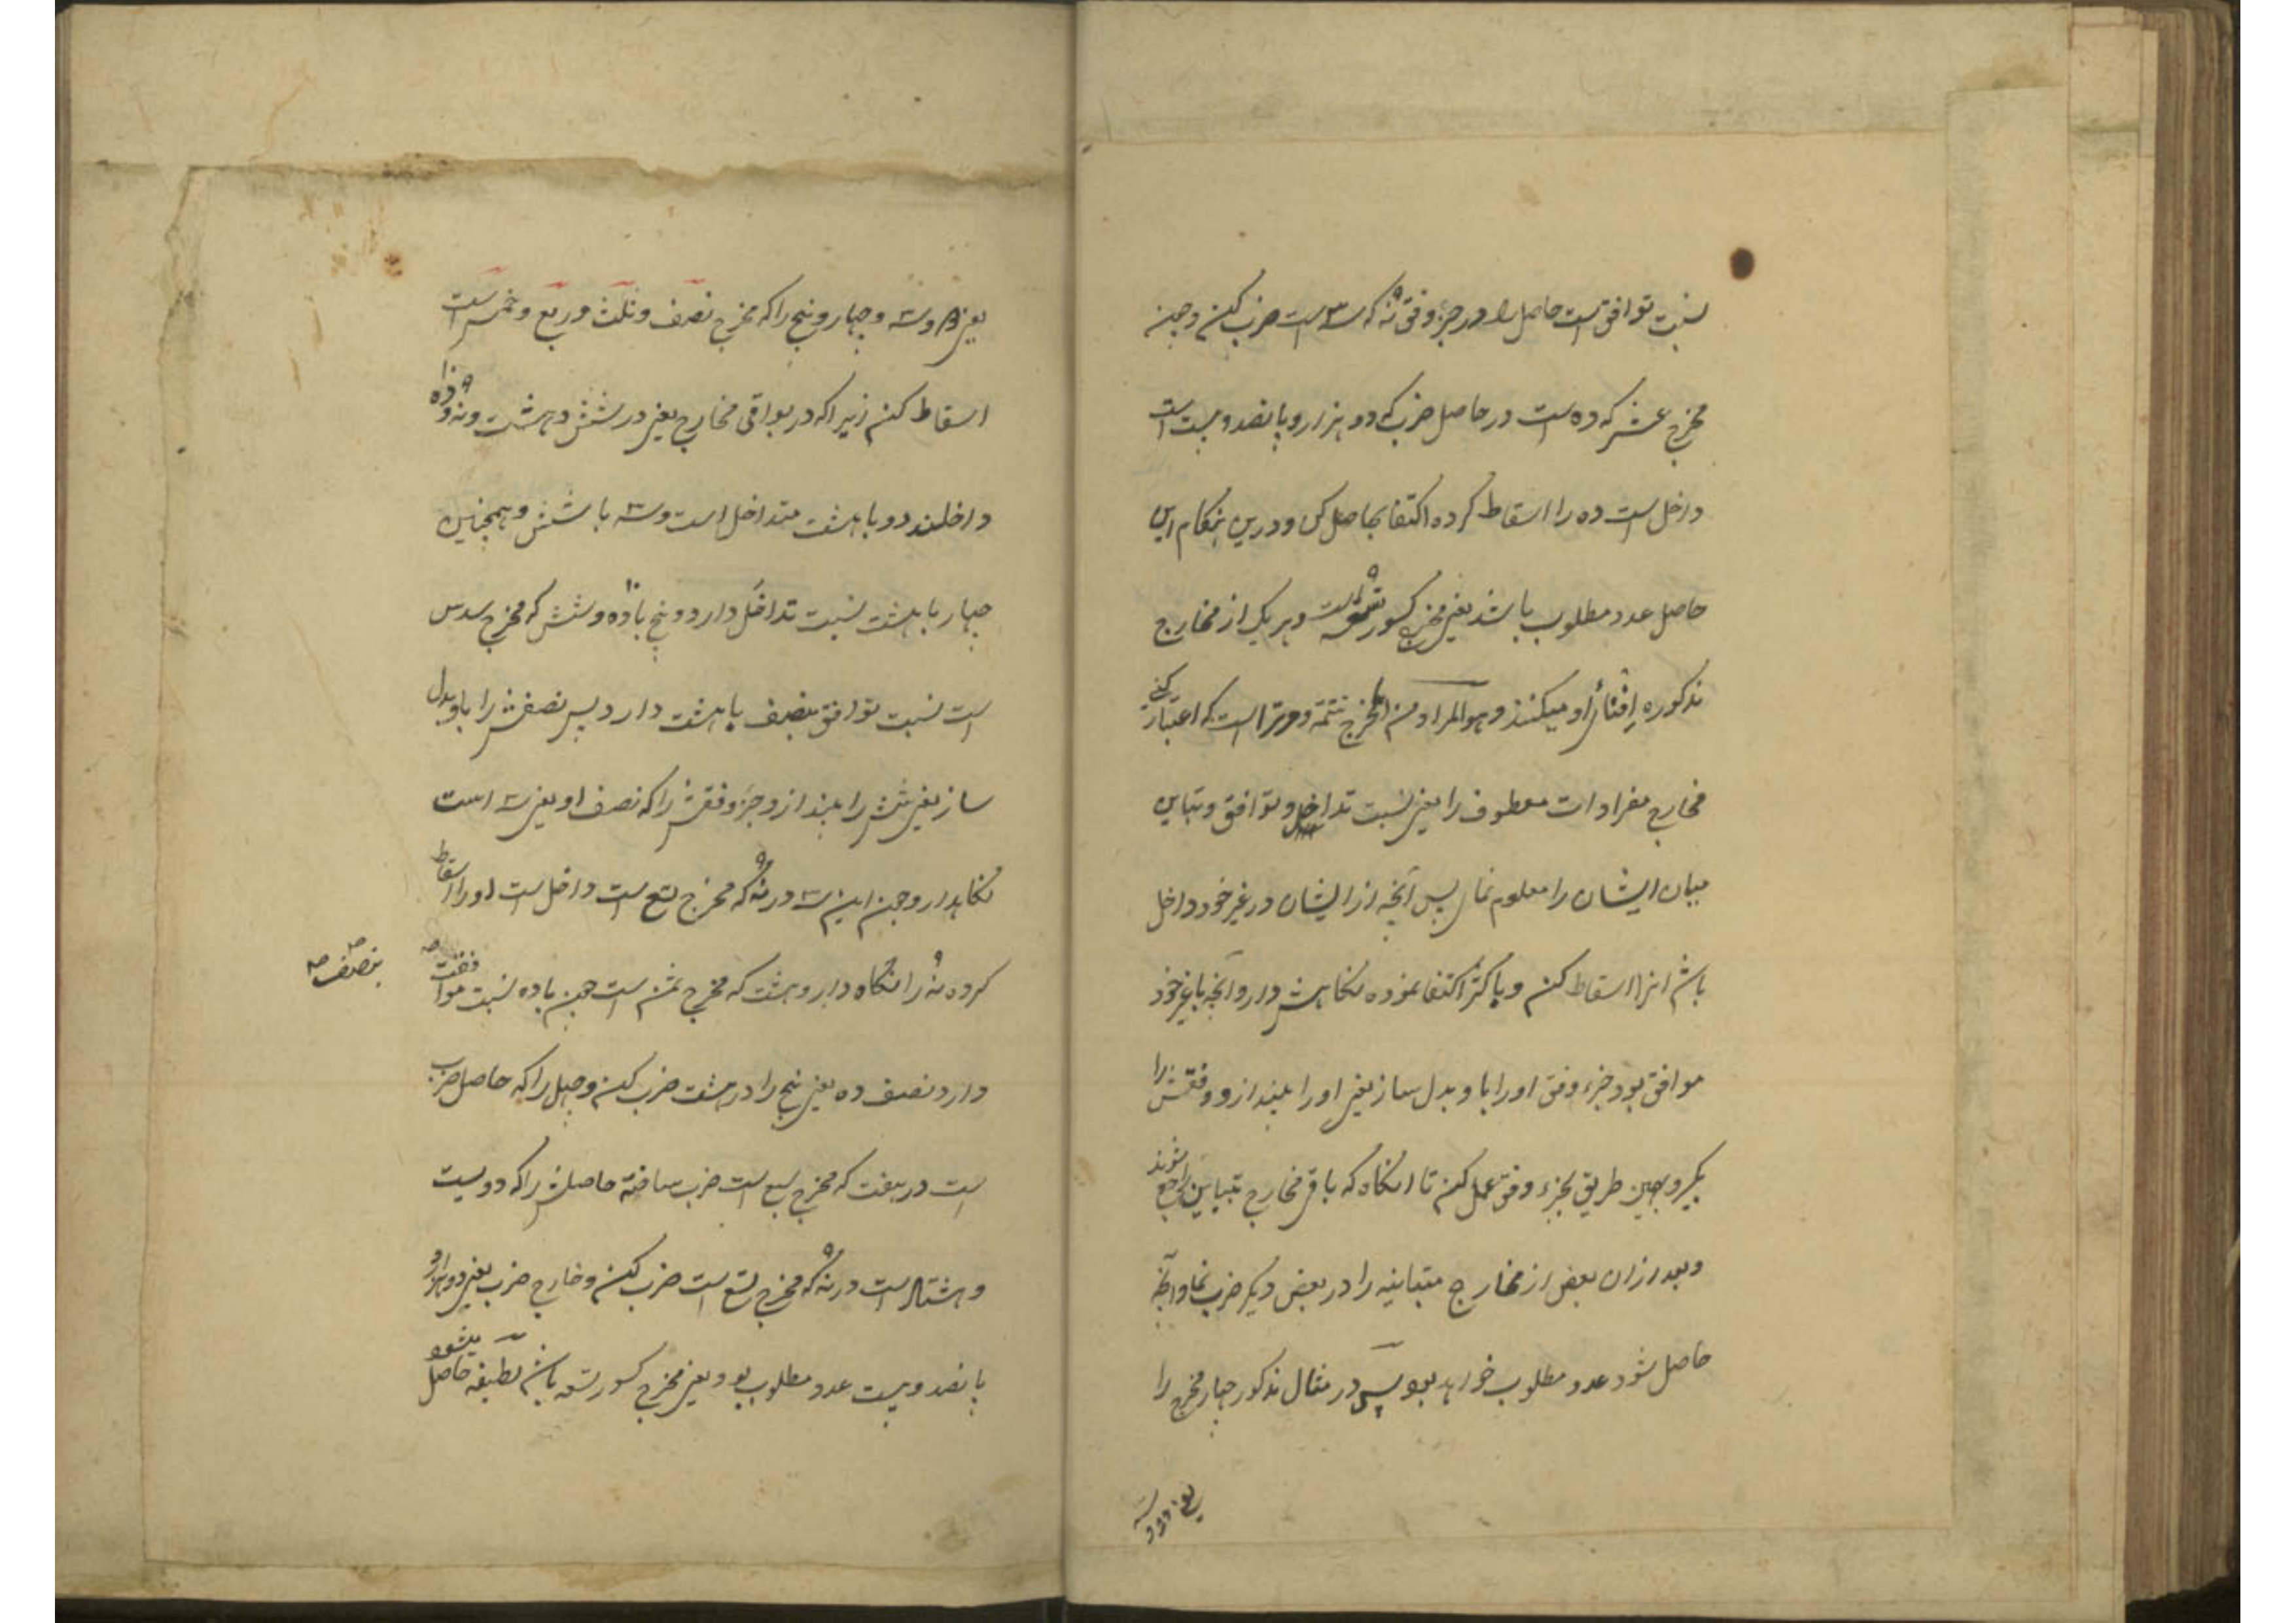 نسبت توافق است حاصل را در جزؤ وفق نه که سه است ضرب کن و چون
مخرج عشر که ده است در حاصل ضرب که دو هزار و پانصد و بیست است
داخل است ده را اسقاط کرده اکتفا بحاصل کن و درین هنگام این
حاصل عدد مطلوب باشد یعنی مخرج کسور تسعه است و هر یک از مخارج
مذکوره افنائ او میکنند و هو المراد من المخرج تتمه و مر تراست که اعتبار کنی
مخارج مفرادات معطوف را یعنی نسبت تداخل و توافق و تباین
میان ایشان را معلوم نمای پس آنچه از ایشان در غیر خود داخل
باشد انرا اسقاط کن و باکثر اکتفا نموده نگاهش دار و آنچه با غیر خود
موافق بود جزء وفق او را با و بدل ساز یعنی او را بینداز و وفقش را
بگیر و بهمین طریق بجزء وفق عمل کن تا انگاه که باقی مخارج بتباین راجع شوند
و بعد ازان بعض از مخارج متباینه را در بعض دیگر ضرب نما و آنچه
حاصل شود عدد مطلوب خواهد بود پس در مثال مذکور چهار مخرج را
یعنی دو و سه
یعنی دو و سه و چهار و پنج را که مخرج نصف و ثلث و ربع و خمس است
اسقاط کنم زیرا که در بواقی مخارج یعنی در شش و هشت و نه و ده
داخلند دو با هشت متداخل است و سه با شش و همچنین
چهار با هشت نسبت تداخل دارد و پنج با ده و شش که مخرج سدس
است نسبت توافق بنصف با هشت دارد پس نصفش را باو بدل
ساز یعنی شش را بینداز و جزؤ وفقش را که نصف او یعنی سه است
نگاهدار و چون این سه در نه که مخرج تسع است داخل است او را اسقاط
کرده نه را نگاه دار و هشت که مخرج ثمن است چون با ده نسبت موافقت
بنصف
دارد نصف ده یعنی پنج را در هشت ضرب کن و چهل را که حاصل ضرب
است در هفت که مخرج سبع است ضرب ساخته حاصلش را که دویست
و هشتاد است در نه که مخرج تسع است ضرب کن و خارج ضرب یعنی دو هزار و
پانصد و بیست عدد مطلوب بود یعنی مخرج کسور تسعه باشد لطیفه حاصل میشود